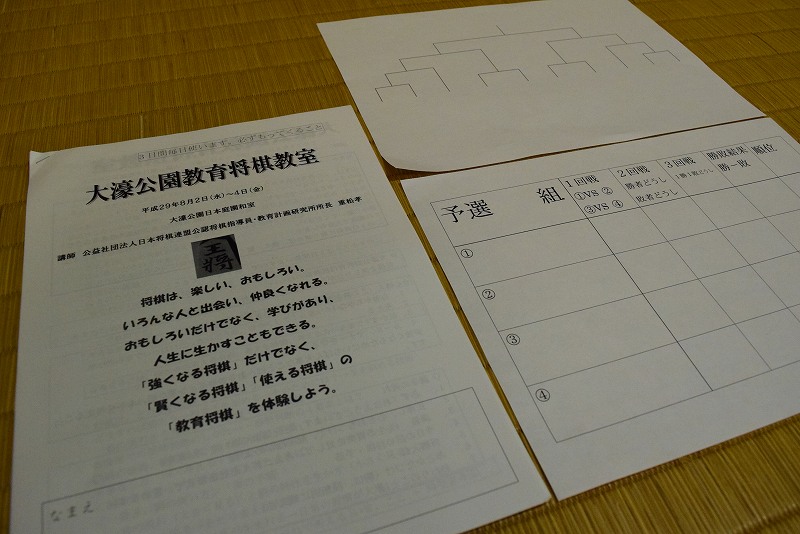 3日間毎日使います。必ずもってくること
大濠公園教育将棋教室
平成29年8月2日(水)~4日(金)
大濠公園日本庭園和室
講師 公益社団法人日本将棋連盟公認将棋指導員・教育計画研究所所長 重松孝
王将
将棋は、楽しい、おもしろい。
いろんな人と出会い、仲良くなれる。
おもしろいだけでなく、学びがあり、
人生に生かすこともできる。
「強くなる将棋」だけでなく、
「賢くなる将棋」「使える将棋」の
「教育将棋」を体験しよう。
なまえ
予選 組
1回戦
①VS ②
③VS ④
2回戦
勝者どうし
敗者どうし
3回戦
1勝1敗どうし
勝敗結果
勝ー敗
順位
①
②
③
④